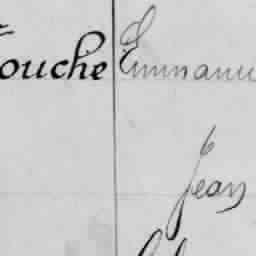 Touche Emmanu
Jean